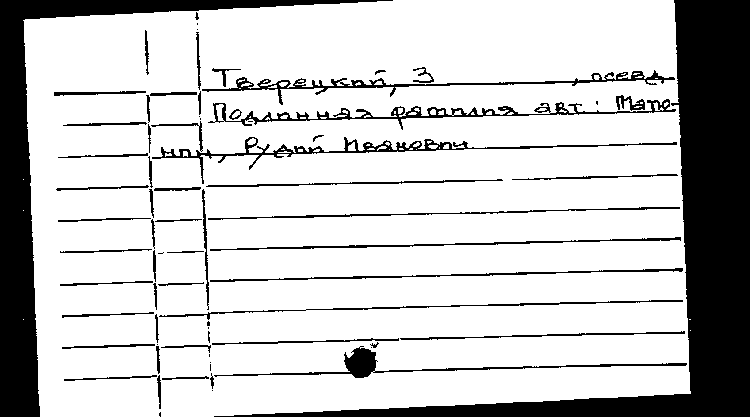 Тверецкий, З , псевд
Подлинная фамилия авт.: Мато-
нин, Рудий Иванович